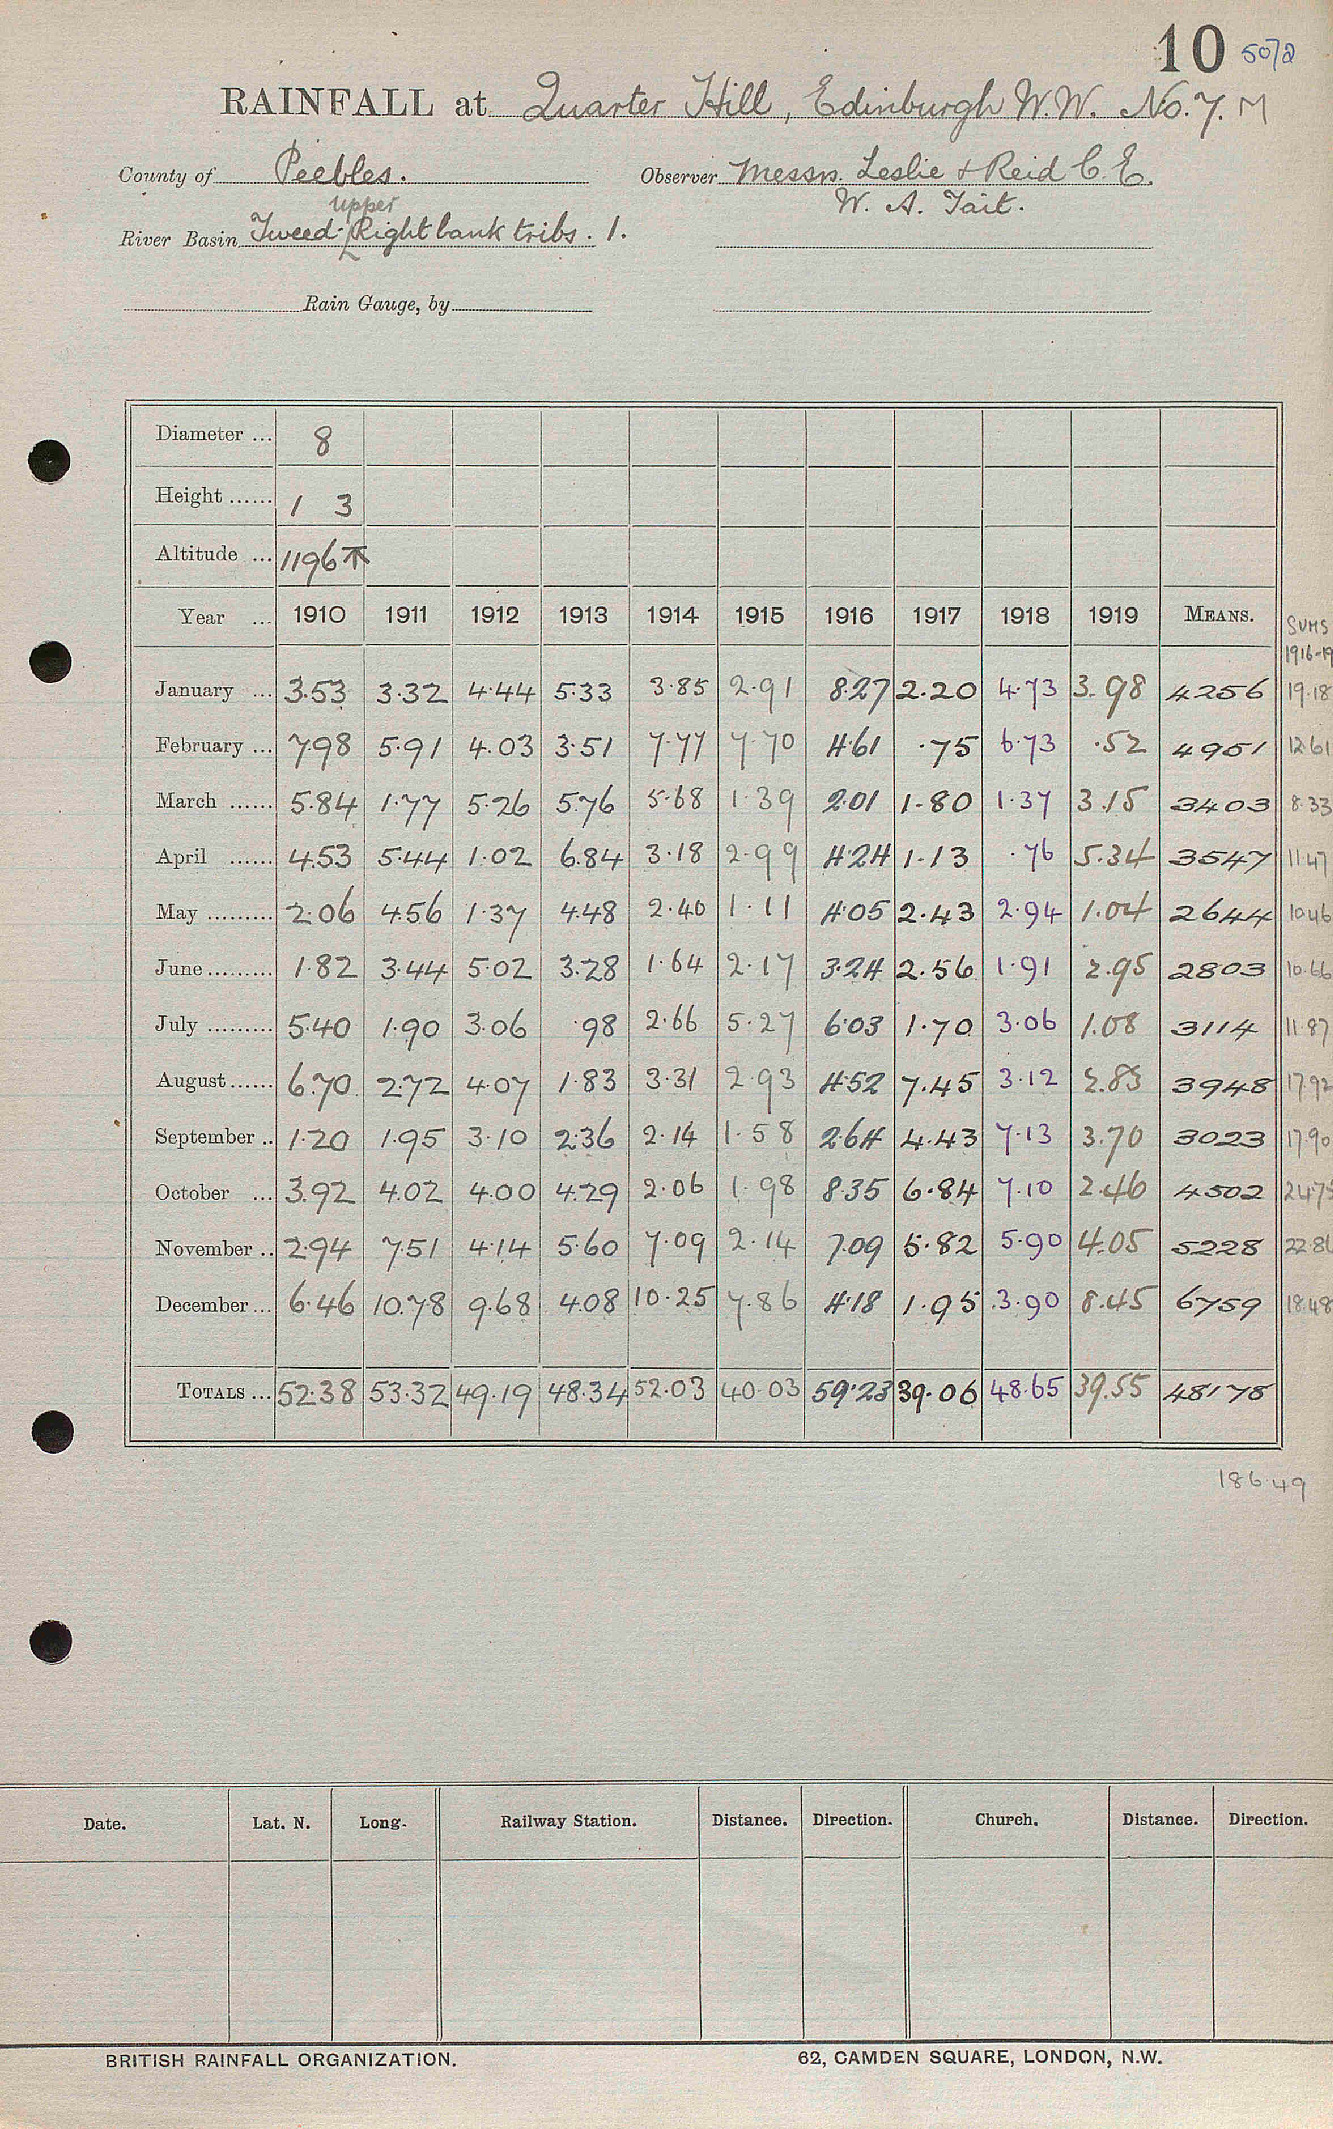 10 5072
RAINFALL at Quarter Hill, Edinburgh W.W. No. 7. M
County of Peebles. Observer Messrs. Leslie & Reid C.E.
W. A. Tait.
upper
River Basin Tweed-Right bank tribs. 1.
Rain Gauge, by
Diameter ... 8
Height ...... 1 3
Altitude ... 1196
Year ... 1910 1911 1912 1913 1914 1915 1916 1917 1918 1919 MEANS. SUMS
1916-19
January ... 3.53 3.32 4.44 5.33 3.85 2.91 8.27 2.20 4.73 3.98 4256 19.18
February ... 7.98 5.91 4.03 3.51 7.77 7.70 4.61 .75 6.73 .52 4951 12.61
March ...... 5.84 1.77 5.26 5.76 5.68 1.39 2.01 1.80 1.37 3.15 3403 8.33
April ...... 4.53 5.44 1.02 6.84 3.18 2.99 4.24 1.13 .76 5.34 3547 11.47
May ......... 2.06 4.56 1.37 4.48 2.40 1.11 4.05 2.43 2.94 1.04 2644 10.46
June ......... 1.82 3.44 5.02 3.28 1.64 2.17 3.24 2.56 1.91 2.95 2803 10.66
July ......... 5.40 1.90 3.06 .98 2.66 5.27 6.03 1.70 3.06 1.08 3114 11.87
August ...... 6.70 2.72 4.07 1.83 3.31 2.93 4.52 7.45 3.12 2.83 3948 17.92
September .. 1.20 1.95 3.10 2.36 2.14 1.58 2.64 4.43 7.13 3.70 3023 17.90
October ... 3.92 4.02 4.00 4.29 2.06 1.98 8.35 6.84 7.10 2.46 4502 24.75
November .. 2.94 7.51 4.14 5.60 7.09 2.14 7.09 5.82 5.90 4.05 5228 22.86
December ... 6.46 10.78 9.68 4.08 10.25 7.86 4.18 1.95 3.90 8.45 6759 18.48
TOTALS ... 52.38 53.32 49.19 48.34 52.03 40.03 59.23 39.06 48.65 39.55 48178
186.49
Date. Lat. N. Long. Railway Station. Distance. Direction. Church. Distance. Direction.
BRITISH RAINFALL ORGANIZATION. 62, CAMDEN SQUARE, LONDON, N.W.